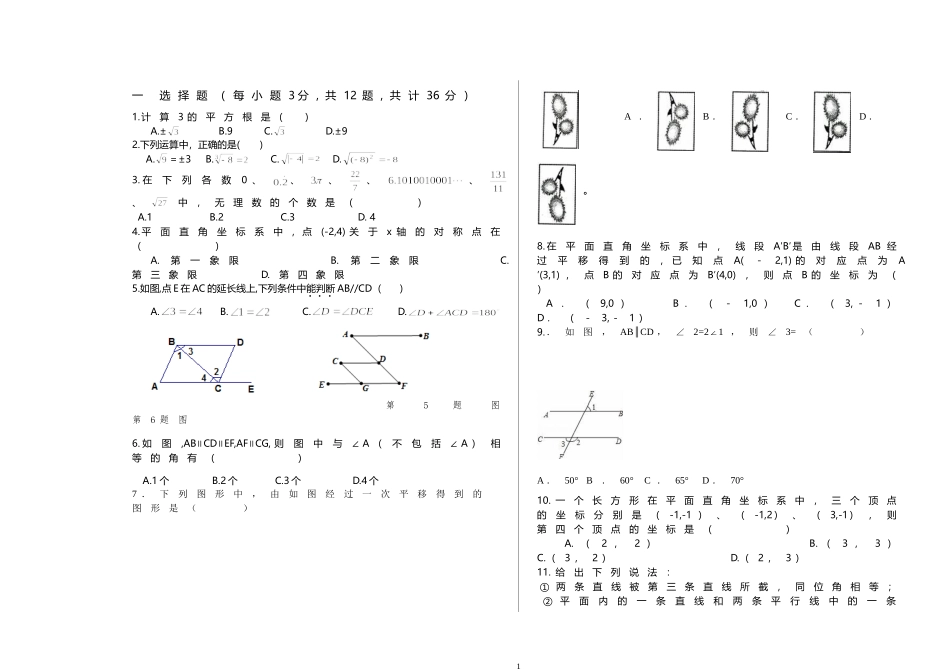 一 选择题（每小题3分,共12题,共计36分）
1.计算3的平方根是( )
A.±√3 B.9 C.√3 D.±9
2.下列运算中，正确的是( )
A.√9=±3 B.∛-8=2 C.√|-4|=2 D.√(-8)²=-8
3.在下列各数0、0.2、3π、22/7、6.1010010001…、131/11
、√27中，无理数的个数是( )
A.1 B.2 C.3 D. 4
4.平面直角坐标系中,点(-2,4)关于x轴的对称点在
( )
A.第一象限 B.第二象限 C.
第三象限 D.第四象限
5.如图,点E在AC的延长线上,下列条件中能判断AB//CD（ ）
A.∠3=∠4 B.∠1=∠2 C.∠D=∠DCE D.∠D+∠ACD=180
B D
1 3
2
4
A C E
A B
C D
E G F
第 5 题 图
第 6 题 图
6.如图,AB∥CD∥EF,AF∥CG,则图中与∠A(不包括∠A)相
等的角有( )
A.1个 B.2个 C.3个 D.4个
7．下列图形中，由如图经过一次平移得到的
图形是（ ）
A． B． C． D．
。
8.在平面直角坐标系中，线段A′B′是由线段AB经
过平移得到的，已知点A(-2,1)的对应点为A
′(3,1)，点B的对应点为B′(4,0)，则点B的坐标为（
）
A．(9,0) B．(-1,0) C．(3,-1)
D．(-3,-1)
9.．如图，AB∥CD，∠2=2∠1，则∠3=（ ）
E
A 1 B
C 3 2 D
F
A． 50° B． 60° C． 65° D． 70°
10.一个长方形在平面直角坐标系中，三个顶点
的坐标分别是(-1,-1)、(-1,2)、(3,-1)，则
第四个顶点的坐标是( )
A.(2，2) B.(3，3)
C.(3，2) D.(2，3)
11.给出下列说法：
①两条直线被第三条直线所截，同位角相等；
②平面内的一条直线和两条平行线中的一条
1